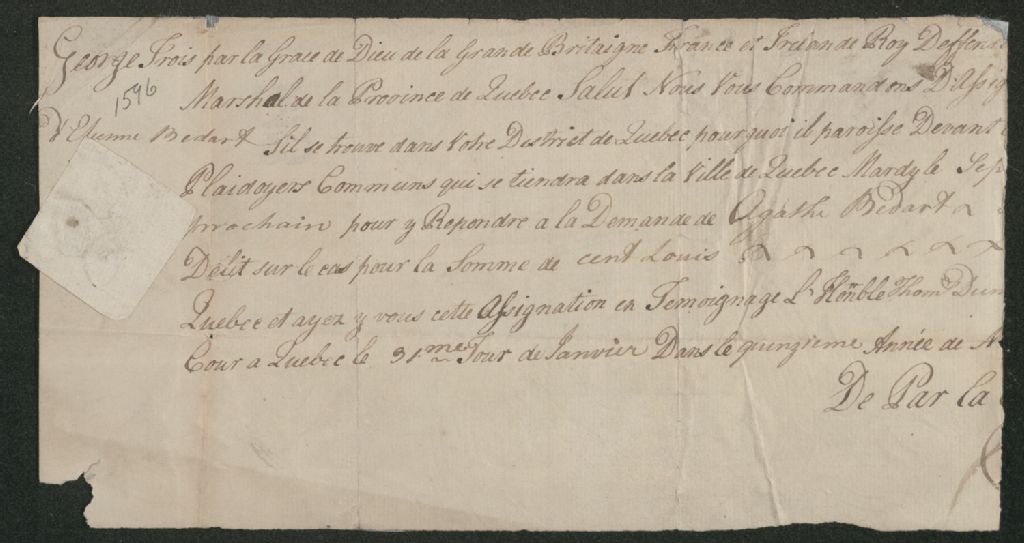 George Trois par la Grace de Dieu de la Grande Britaigne France et Irelande Roy Deffen
1596
Marshal de la Province de Quebec Salut Nous Vous Commandons D'Assig
Etienne Bedart Sil se trouve dans Votre Destrict de Quebec pourquoi il paroisse Devant
Plaidoyers Communs qui se tiendra dans la Ville de Quebec Mardy le Sep
prochain pour y Repondre a la Demande de Agathe Bedart
Delit sur le cas pour la Somme de cent Louis
Quebec et ayez y vous cette Assignation en Temoignage L'Honble Thoms Dun
Cour a Quebec le 31me Jour de Janvier Dans le quinzieme Année de N
De Par la